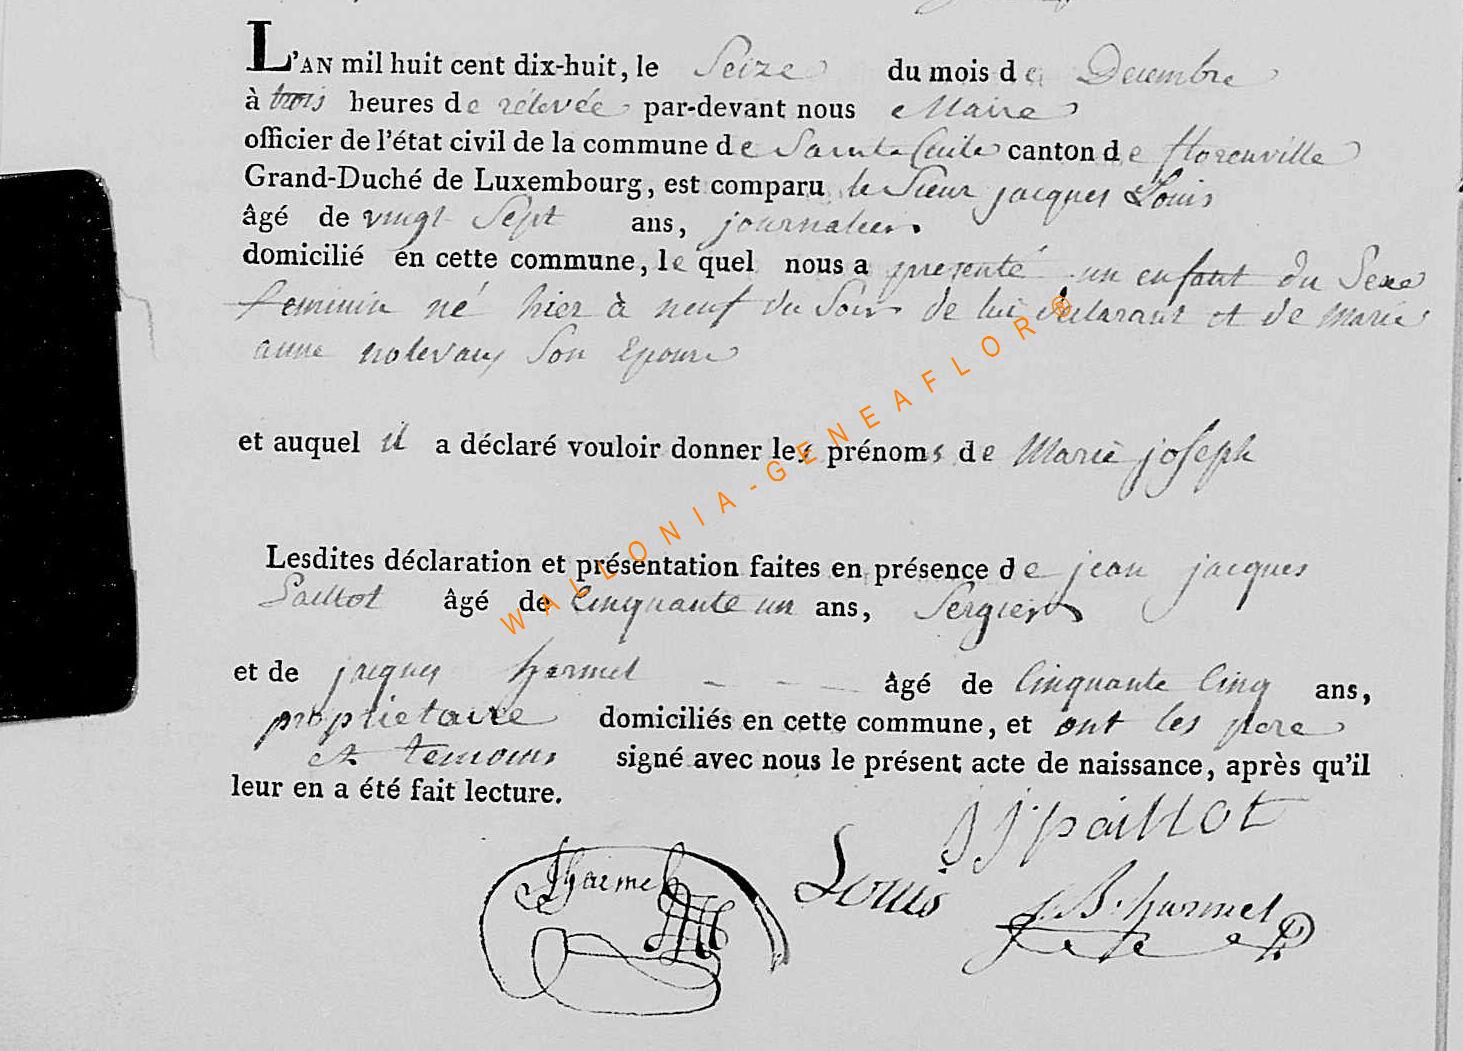 L'AN mil huit cent dix-huit, le Seize du mois de Decembre
à trois heures de rélevée par-devant nous Maire
officier de l'état civil de la commune de Sainte Cécile canton de florenville
Grand-Duché de Luxembourg, est comparu le Sieur jacques Louis
âgé de vingt Sept ans, journalier.
domicilié en cette commune, le quel nous a presenté un enfant du Sexe
feminin né hier à neuf du Soir de lui déclarant et de Marie
anne Son Epouse
et auquel il a déclaré vouloir donner les prénoms de Marie joseph
Lesdites déclaration et présentation faites en présence de jean jacques
Paillot âgé de Cinquante un ans, Sergier
et de jacques harmel âgé de Cinquante Cinq ans,
proprietaire domiciliés en cette commune, et ont les pere
et temoins signé avec nous le présent acte de naissance, après qu'il
leur en a été fait lecture.
J J paillot
J harmel
Louis
J. B. harmel
WALLONIA-GENEAFLOR®